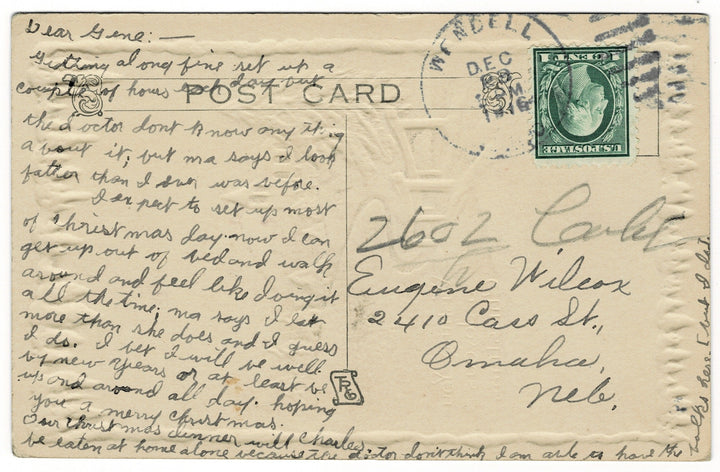 Dear Gene: —
Getting along fine set up a
couple of hours each day but
POST CARD
the doctor dont know any thing
about it, but ma says I look
fatter than I ever was before.
I expect to set up most
of Christmas day. now I can
get up out of bed and walk
around and feel like doing it
all the time, ma says I eat
more than she does and I guess
I do. I bet I will be well
by new years or at least be
up and around all day. hoping
you a merry christmas.
Charles
Our christmas dinner will
be eaten at home alone because the doctor don't think I am able to have the
folks here. but I do.
WENDELL
DEC
M
U.S. POSTAGE
1 CENT 1
2602
Eugene Wilcox
2410 Cass St.,
Omaha,
Neb.